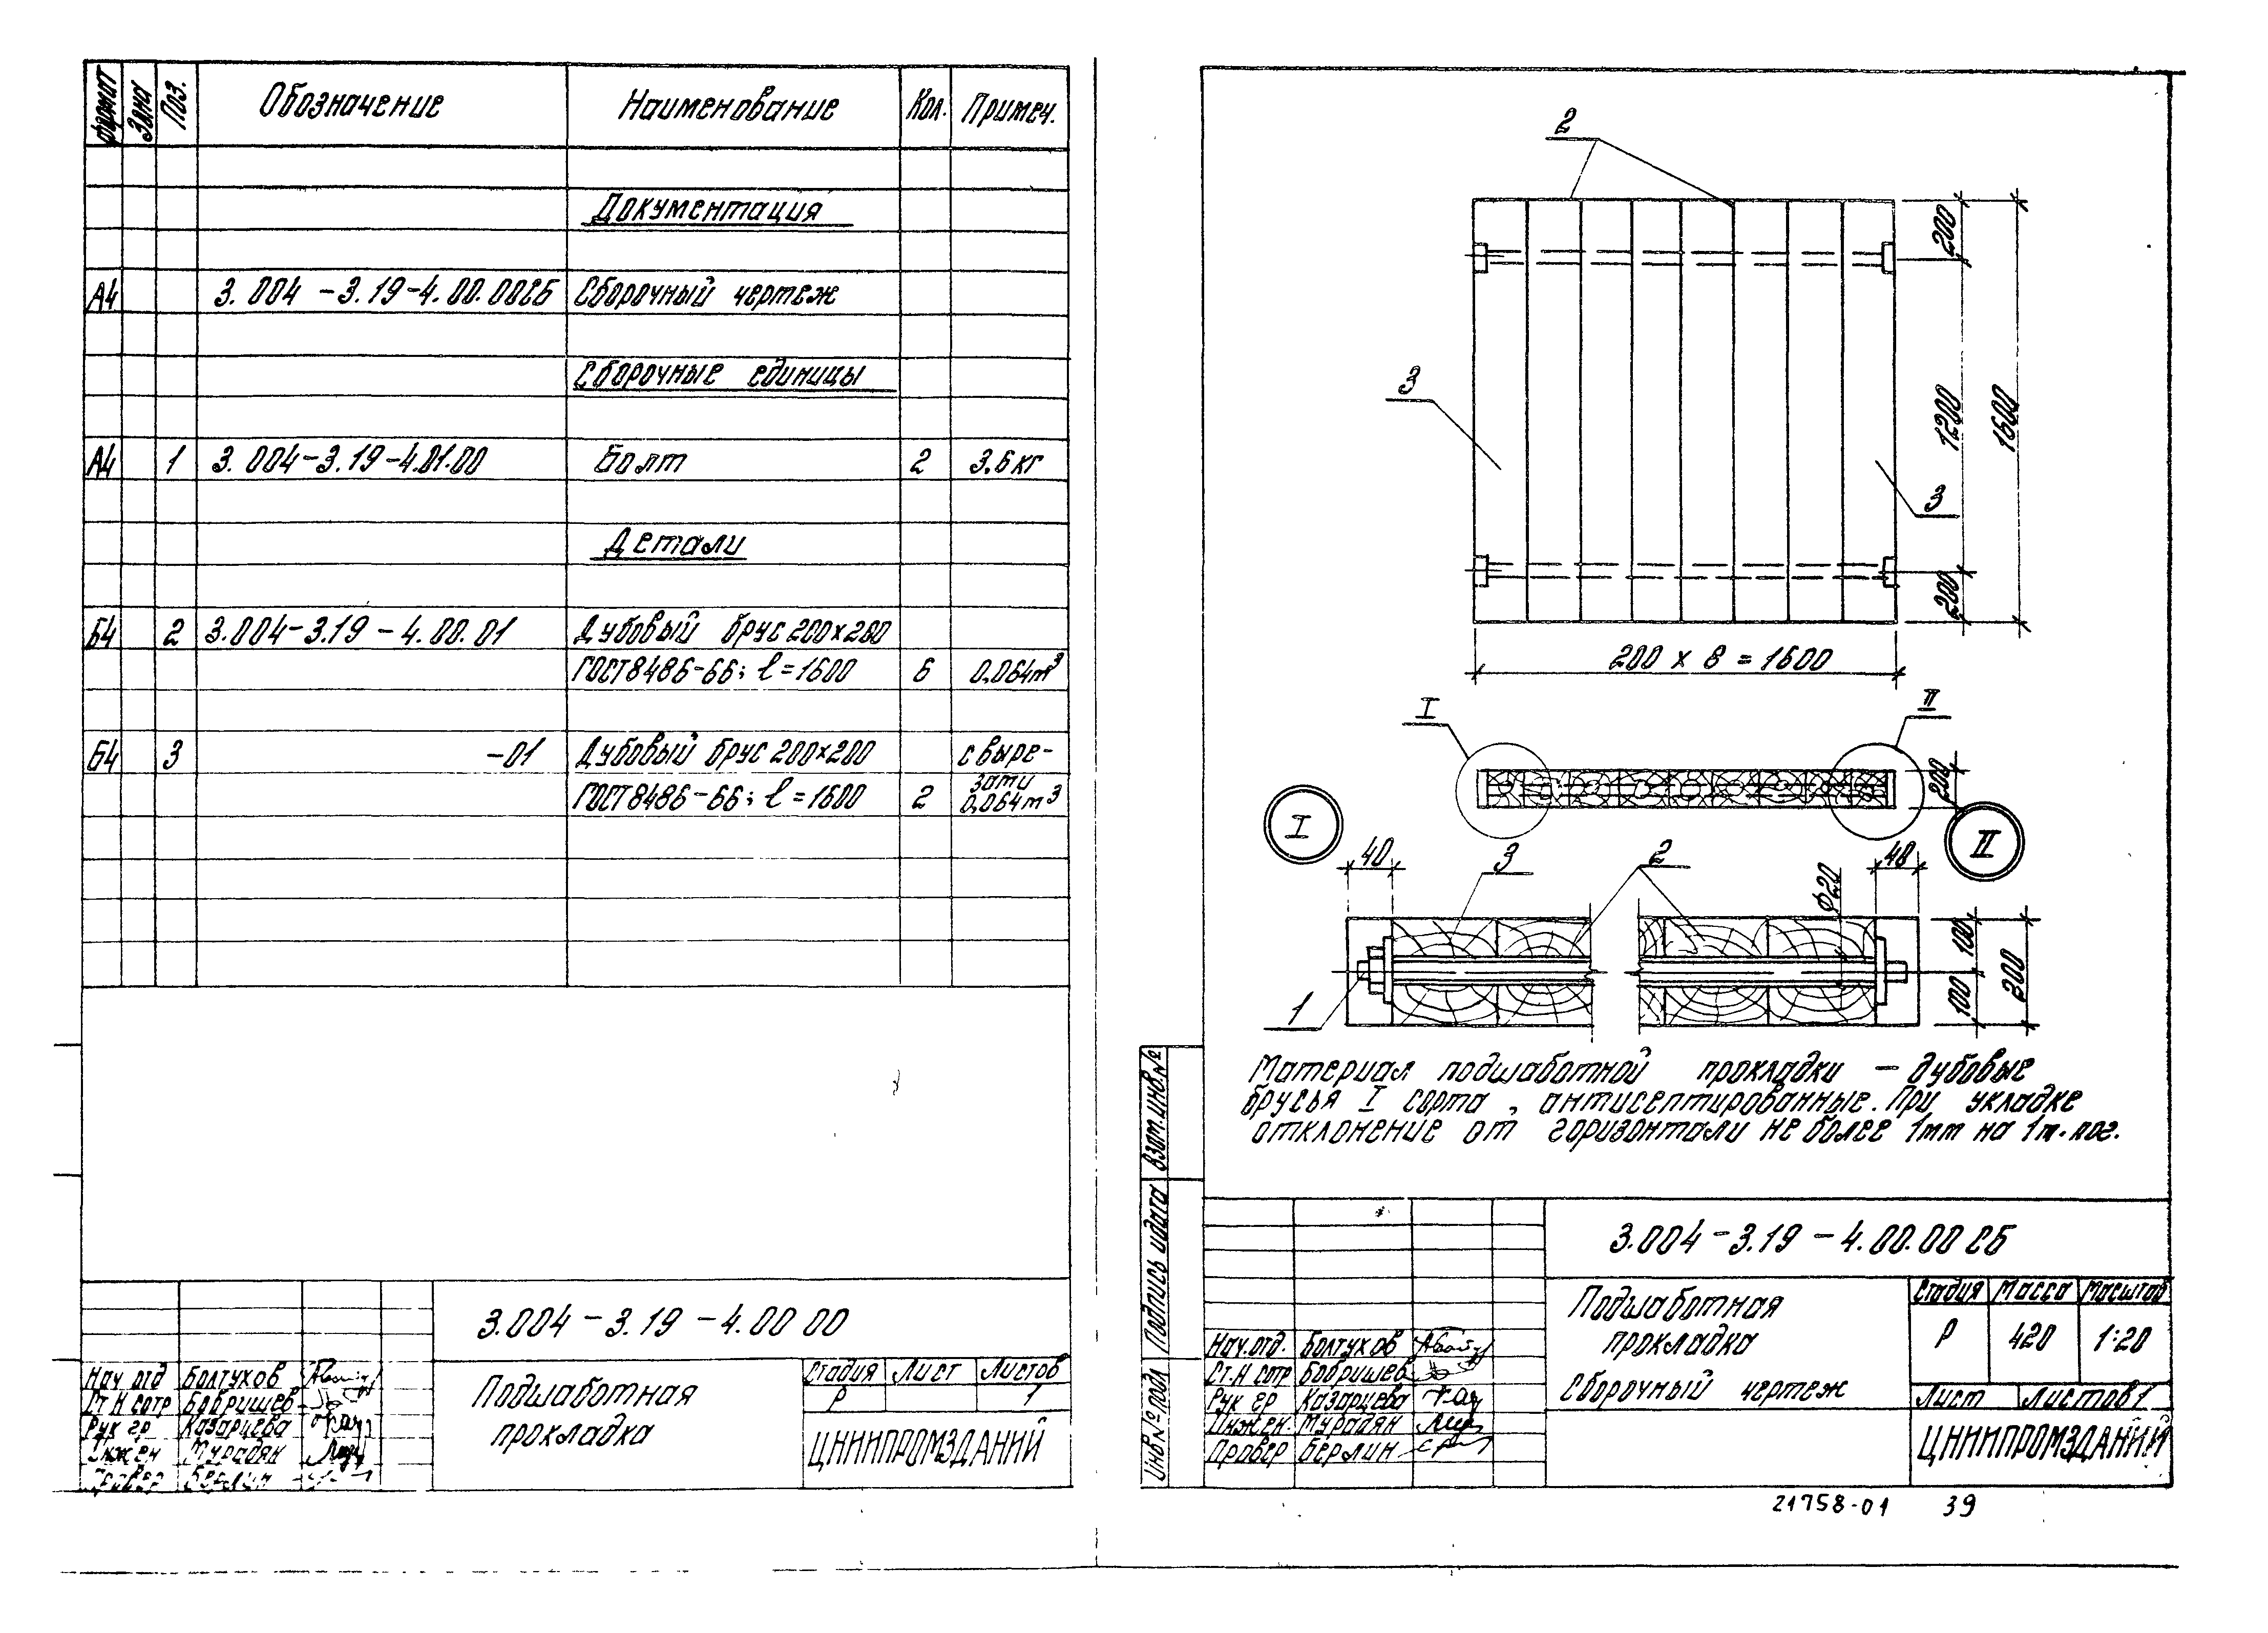 формат Зона Поз. Обозначение Наименование Кол. Примеч.
Документация
А4 3.004-3.19-4.00.00СБ Сборочный чертеж
Сборочные единицы
А4 1 3.004-3.19-4.01.00 Болт 2 3.6 кг
Детали
Б4 2 3.004-3.19-4.00.01 Дубовый брус 200×200
ГОСТ 8486-66; l=1600 6 0,064 m³
Б4 3 -01 Дубовый брус 200×200 с выре-
зами
ГОСТ 8486-66; l=1600 2 0,064 m³
3.004-3.19-4.00 00
Нач отд Болтухов
Ст Н сотр Бобришев
Рук гр Казарцева
Инжен Мурадян
Провер Берлин
Подшаботная
прокладка
Стадия Лист Листов
Р 1
ЦНИИПРОМЗДАНИЙ
2
200
3
1200
1600
3
200
200 × 8 = 1600
I
II
200
I
II
40
3
2
Ф20
40
100
200
100
1
Материал подшаботной прокладки – дубовые
брусья I сорта, антисептированные. При укладке
отклонение от горизонтали не более 1mm на 1m.пог.
Взам.инв.№
Подпись и дата
Инв № подл
3.004-3.19-4.00.00 СБ
Нач.отд. Болтухов
Ст.Н сотр Бобришев
Рук гр Казарцева
Инжен. Мурадян
Провер Берлин
Подшаботная
прокладка
Сборочный чертеж
Стадия Масса Масштаб
Р 420 1:20
Лист Листов 1
ЦНИИПРОМЗДАНИЙ
21758-01 39